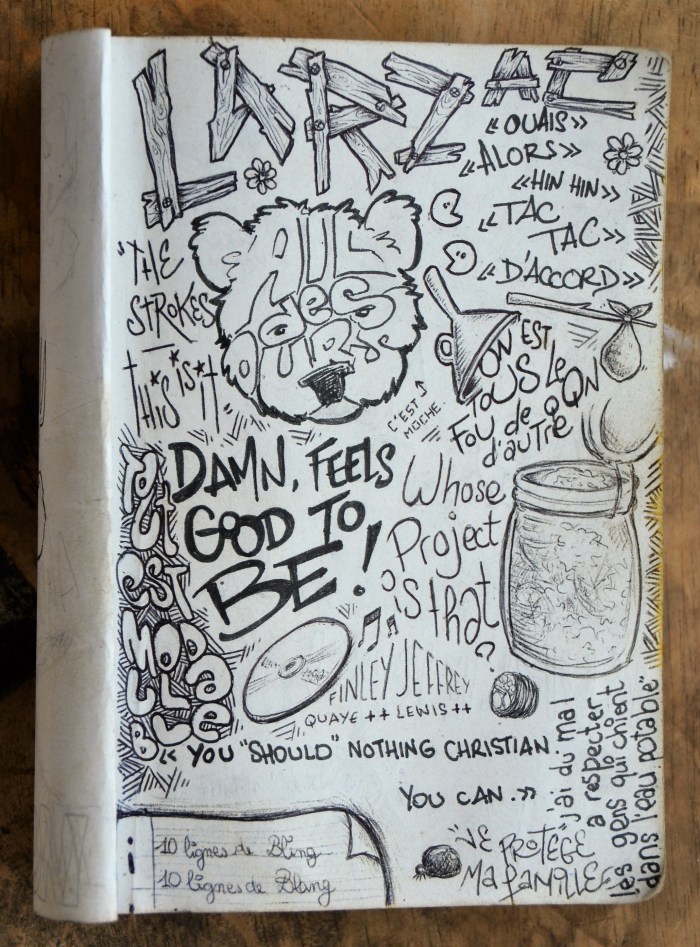 LARZAC
«OUAIS»
«ALORS»
«HIN HIN»
«TAC
TAC»
«D'ACCORD»
"THE
STROKES
THIS*is*it"
des
OURS
C'EST
MOCHE
ON EST
TOUS LE
FOU de QQN
d'AUTRE
DAMN, FEELS
GOOD TO
BE!
Whose
Project
is that?
EST
MODULABLE
FINLEY JEFFREY
QUAYE ++ LEWIS ++
«YOU "SHOULD" NOTHING CHRISTIAN.
YOU CAN.»
"j'ai du mal
a respecter
les gens qui chient
dans l'eau potable"
"JE PROTÈGE
MA FAMILLE"
10 lignes de Bling
10 lignes de Blang